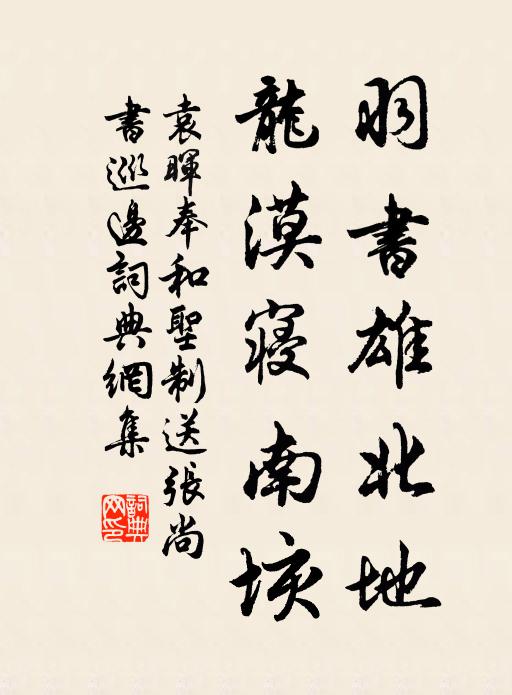 羽書雄北地
龍漠寝南垓
袁暉奉和聖制送張尚
書巡邊詞典網集
詞典網印